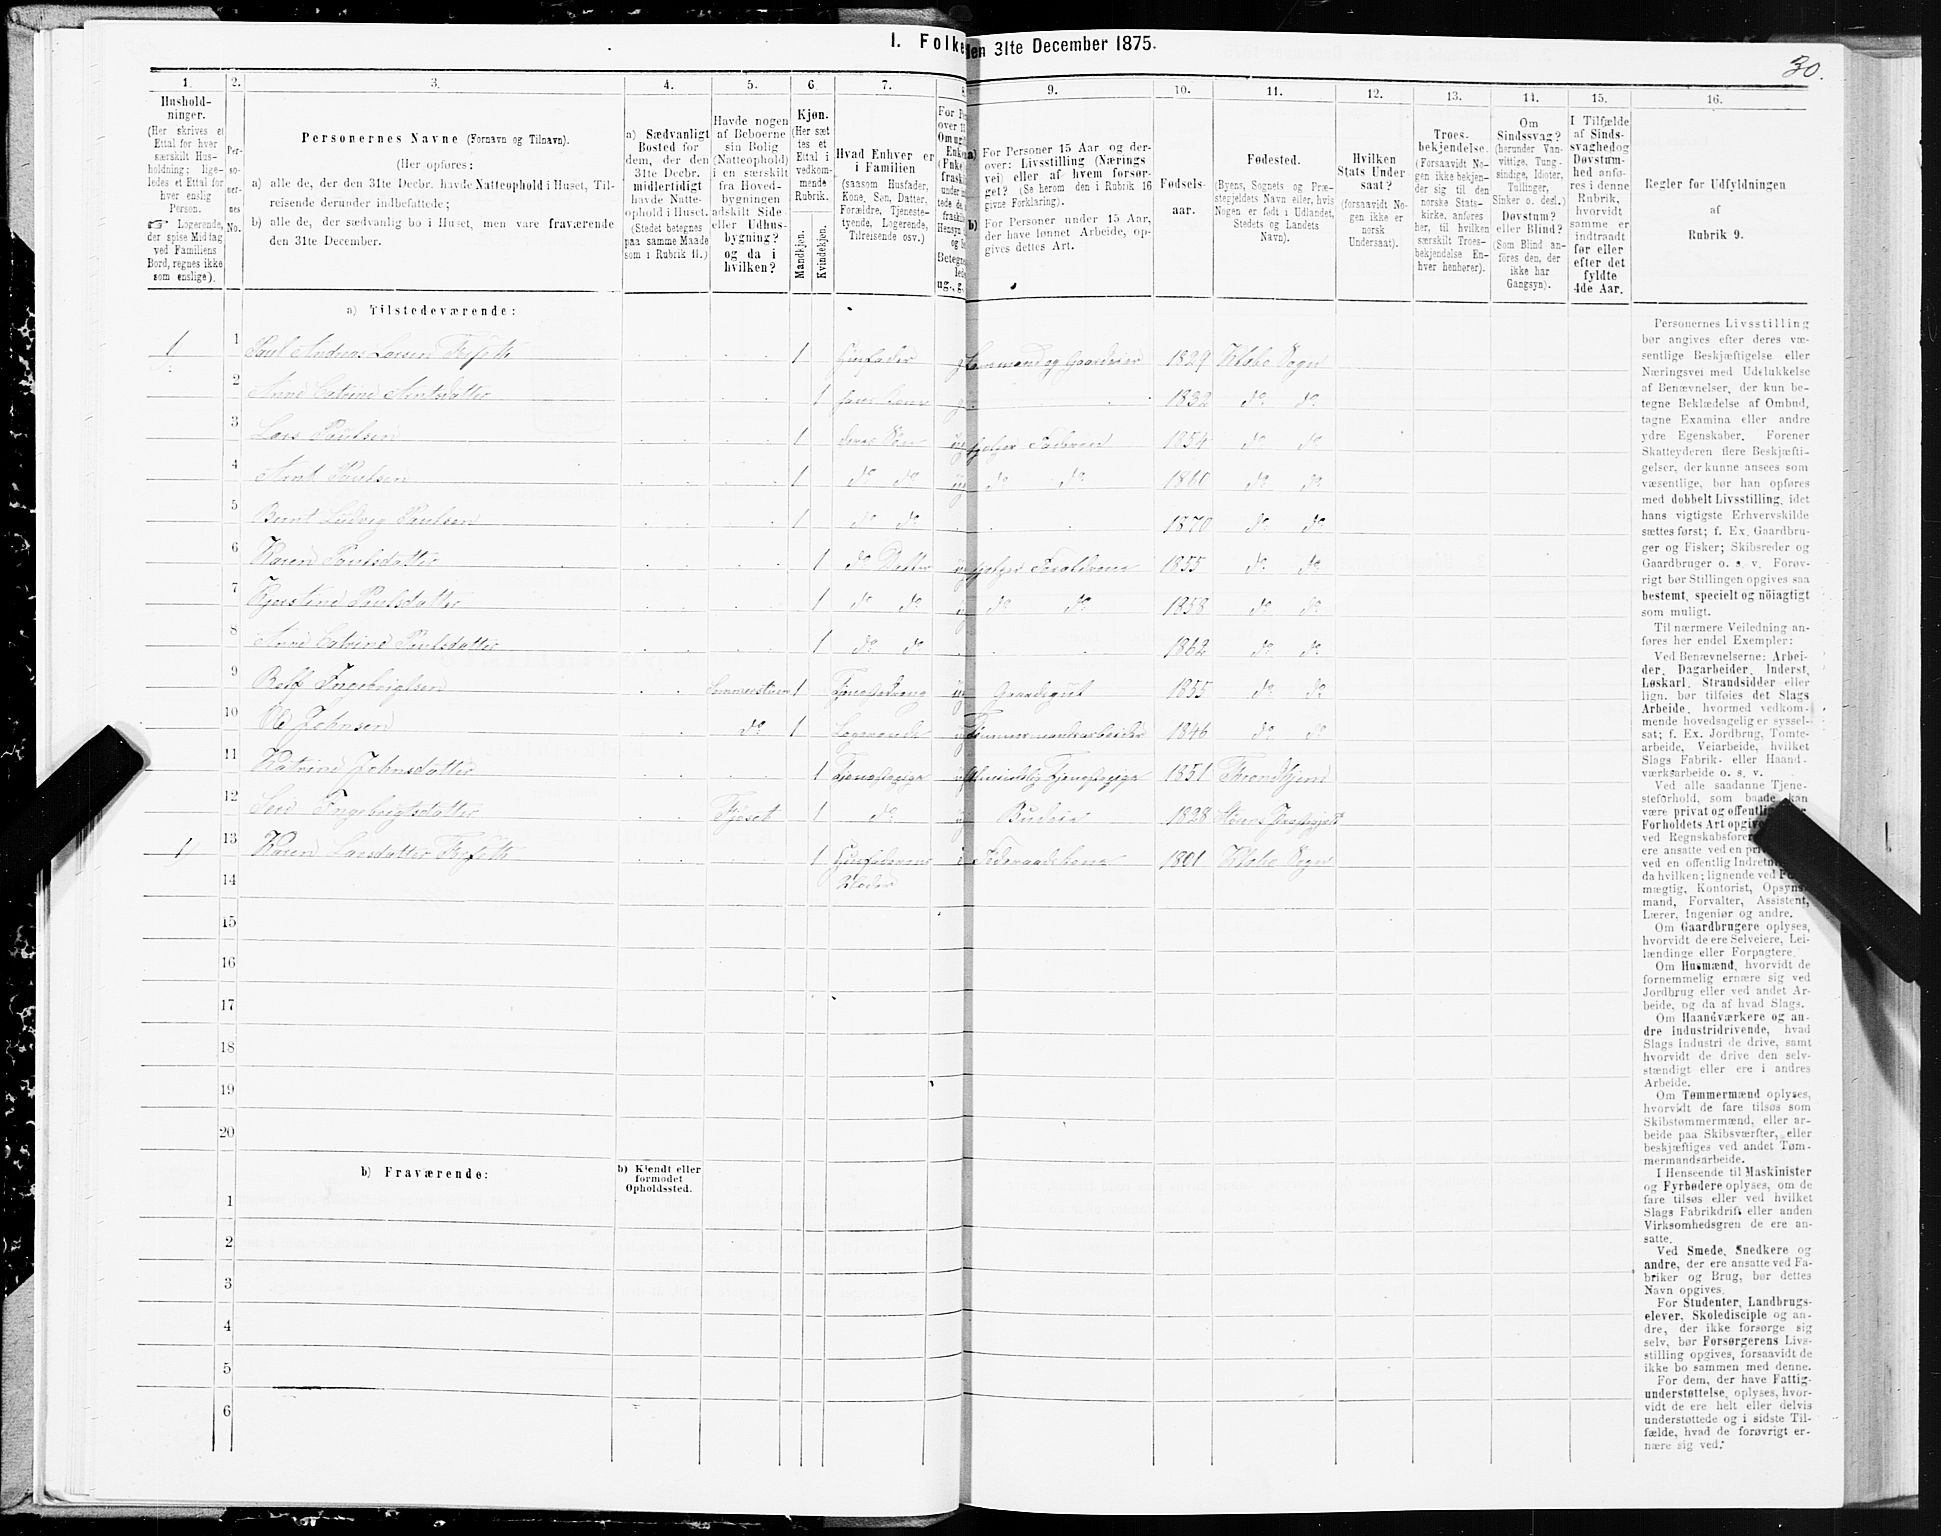 I. Folke
den 31te December 1875.
30.
1.
2.
3.
4.
5.
6.
7.
8
9.
10.
11.
12.
13.
14.
15.
16.
Hushold-
ninger.
(Her skrives et
Ettal for hver
særskilt Hus-
holdning; lige-
ledes et Ettal for
hver enslig
Person.
☞ Logerende,
der spise Middag
ved Familiens
Bord, regnes ikke
som enslige).
Per-
so-
ner-
nes
No.
Personernes Navne (Fornavn og Tilnavn).
(Her opføres:
a) alle de, der den 31te Decbr. havde Natteophold i Huset, Til-
reisende derunder indbefattede;
b) alle de, der sædvanlig bo i Huset, men vare fraværende
den 31te December.
a) Sædvanligt
Bosted for
dem, der den
31te Decbr.
midlertidigt
havde Natte-
ophold i Huset.
(Stedet betegnes
paa samme Maade
som i Rubrik 11.)
Havde nogen
af Beboerne
sin Bolig
(Natteophold)
i en særskilt
fra Hoved-
bygningen
adskilt Side-
eller Udhus-
bygning?
og da i
hvilken?
Kjøn.
(Her sæt-
tes et
Ettal i
vedkom-
mende
Rubrik.
Mandkjøn.
Kvindekjøn.
Hvad Enhver er
i Familien
(saasom Husfader,
Kone, Søn, Datter,
Forældre, Tjeneste-
tyende, Logerende,
Tilreisende osv.)
a) For Personer 15 Aar og der-
over: Livsstilling (Nærings-
vei) eller af hvem forsør-
get? (Se herom den i Rubrik 16
givne Forklaring).
b) For Personer under 15 Aar,
der have lønnet Arbeide, op-
gives dettes Art.
Fødsels-
aar.
Fødested.
(Byens, Sognets og Præ-
stegjeldets Navn eller, hvis
Nogen er født i Udlandet,
Stedets og Landets
Navn).
Hvilken
Stats Under-
saat?
(forsaavidt No-
gen ikke er
norsk
Undersaat).
Troes-
bekjendelse.
(Forsaavidt No-
gen ikke bekjen-
der sig til den
norske Stats-
kirke, anføres
her, til hvilken
særskilt Troes-
bekjendelse En-
hver henhører).
Om
Sindssvag?
(herunder Van-
vittige, Tung-
sindige, Idioter,
Tullinger,
Sinker o. desl.)
Døvstum?
eller Blind?
(Som Blind an-
føres den, der
ikke har
Gangsyn).
I Tilfælde
af Sinds-
svaghed og
Døvstum-
hed anfø-
res i denne
Rubrik,
hvorvidt
samme er
indtraadt
før eller
efter det
fyldte
4de Aar.
Regler for Udfyldningen
af
Rubrik 9.
a) Tilstedeværende:
1 1 Paul Andreas Larsen Tesseth 1 Husfader g Lensmand og Gaardeier 1829 Klæbo Sogn
2 Anne Catrine Arntsdatter 1 hans Kone g 1832 do do
3 Lars Paulsen 1 deres Søn ug hjelper Faderen 1854 do do
4 Arnt Paulsen 1 do do ug do do 1860 do do
5 Bernt Ludvig Paulsen 1 do do 1870 do do
6 Karen Paulsdatter 1 do Datter ug hjelper Forældrene 1855 do do
7 Kjerstine Paulsdatter 1 do do ug do do 1858 do do
8 Anne Catrine Paulsdatter 1 do do 1862 do do
9 Rolf Ingebrigtsen Sommerstuen 1 Tjenestedreng ug Gaardsgut 1855 do do
10 Ole Johnsen do 1 Logerende ug Tømmermandsarbeider 1846 do do
11 Katrine Johnsdatter 1 Tjenestepige ug Almindelig Tjenestepige 1851 Throndhjem
12 Seri Ingebrigtsdatter Fjøset 1 do ug Budeie 1828 Størens Præstegjeld
1 13 Karen Larsdatter Tesseth 1 Husfaderens Føderaadskone 1801 Klæbo Sogn
14 Moder
15
16
17
18
19
20
b) Fraværende:
b) Kjendt eller
formodet
Opholdssted.
1
2
3
4
5
6
Personernes Livsstilling
bør angives efter deres væ-
sentlige Beskjæftigelse eller
Næringsvei med Udelukkelse
af Benævnelser, der kun be-
tegne Beklædelse af Ombud,
tagne Examina eller andre
ydre Egenskaber. Forener
Skatteyderen flere Beskjæfti-
gelser, der kunne ansees som
væsentlige, bør han opføres
med dobbelt Livsstilling, idet
hans vigtigste Erhvervskilde
sættes først; f. Ex. Gaardbru-
ger og Fisker; Skibsreder og
Gaardbruger o. s. v. Forøv-
rigt bør Stillingen opgives saa
bestemt, specielt og nöiagtigt
som muligt.
Til nærmere Veiledning an-
føres her endel Exempler:
Ved Benævnelserne: Arbei-
der, Dagarbeider, Inderst,
Løskarl, Strandsidder eller
lign. bør tilføies det Slags
Arbeide, hvormed vedkom-
mende hovedsagelig er syssel-
sat; f. Ex. Jordbrug, Tomte-
arbeide, Veiarbeide, hvilket
Slags Fabrik- eller Haand-
værksarbeide o. s. v.
Ved alle saadanne Tjene-
steforhold, som baade kan
være privat og offentlig
Forholdets Art opgives
ved Regnskabsfører
ere ansatte ved en
ved en offentlig
da hvilken; lignende ved
mægtig, Kontorist, Opsyns-
mand, Forvalter, Assistent,
Lærer, Ingeniør og andre.
Om Gaardbrugere oplyses,
hvorvidt de ere Selveiere, Lei-
lændinge eller Forpagtere.
Om Husmænd, hvorvidt de
fornemmelig ernære sig ved
Jordbrug eller ved andet Ar-
beide, og da af hvad Slags.
Om Haandværkere og an-
dre Industridrivende, hvad
Slags Industri de drive, samt
hvorvidt de drive den selv-
stændigt eller ere i andres
Arbeide.
Om Tømmermænd oplyses,
hvorvidt de fare tilsøs som
Skibstømmermænd, eller ar-
beide paa Skibsværfter, eller
beskjæftiges ved andet Tøm-
mermandsarbeide.
I Henseende til Maskinister
og Fyrbødere oplyses, om de
fare tilsøs eller ved hvilket
Slags Fabrikdrift eller anden
Virksomhedsgren de ere an-
satte.
Ved Smede, Snedkere og
andre, der ere ansatte ved Fa-
briker og Brug, bør dettes
Navn opgives.
For Studenter, Landbrugs-
elever, Skoledisciple og an-
dre, der ikke forsørge sig
selv, bør Forsørgerens Livs-
stilling opgives, forsaavidt de
ikke bo sammen med denne.
For dem, der have Fattig-
understøttelse, oplyses, hvor-
vidt de ere helt eller delvis
understøttede og i sidste Til-
fælde, hvad de forøvrigt er-
nære sig ved.